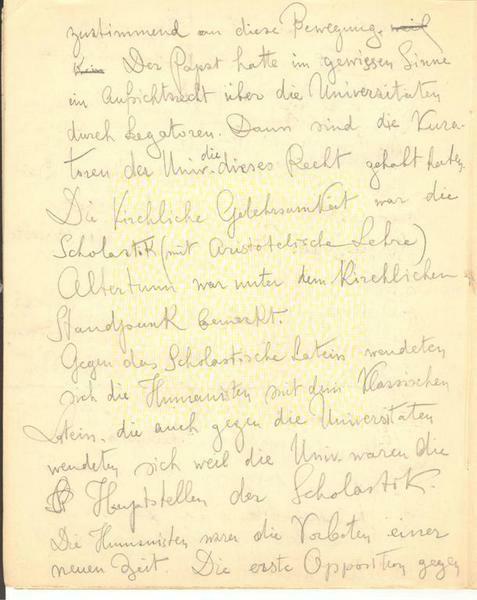 zustimmend an diese Bewegung. weil
kein Der Papst hatte im gewissen Sinne
im Aufsichtsrecht über die Universitäten
durch Legatoren. Dann sind die Kura-
toren der Univ. die dieses Recht gehabt haben.
Die Kirchliche Gelehrsamkeit war die
Scholastik (mit Aristotelische Lehre)
Altertum war unter dem Kirchlichen
Standpunk bemerkt.
Gegen das Scholastische Latein wendeten
sich die Humanisten mit dem Klassischen
Latein, die auch gegen die Universitäten
wendeten sich weil die Univ. waren die
Hauptstellen der Scholastik.
Die Humanisten waren die Vorboten einer
neuen Zeit. Die erste Opposition gegen